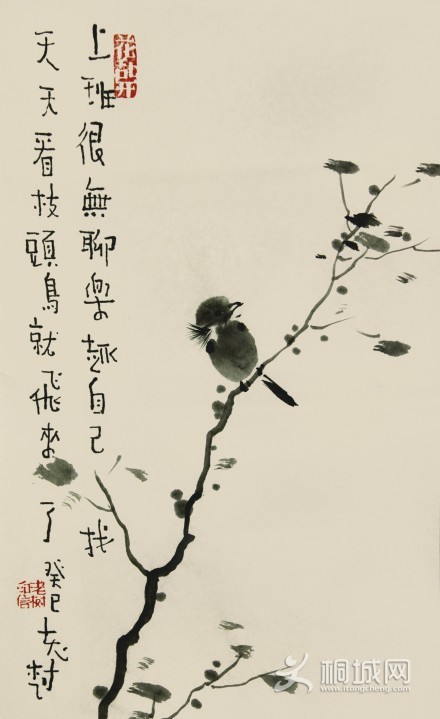 花乱开
上班很無聊樂趣自己找
天天看枝頭鳥就飛來了
癸巳 老树
桐城网
www.itongcheng.com